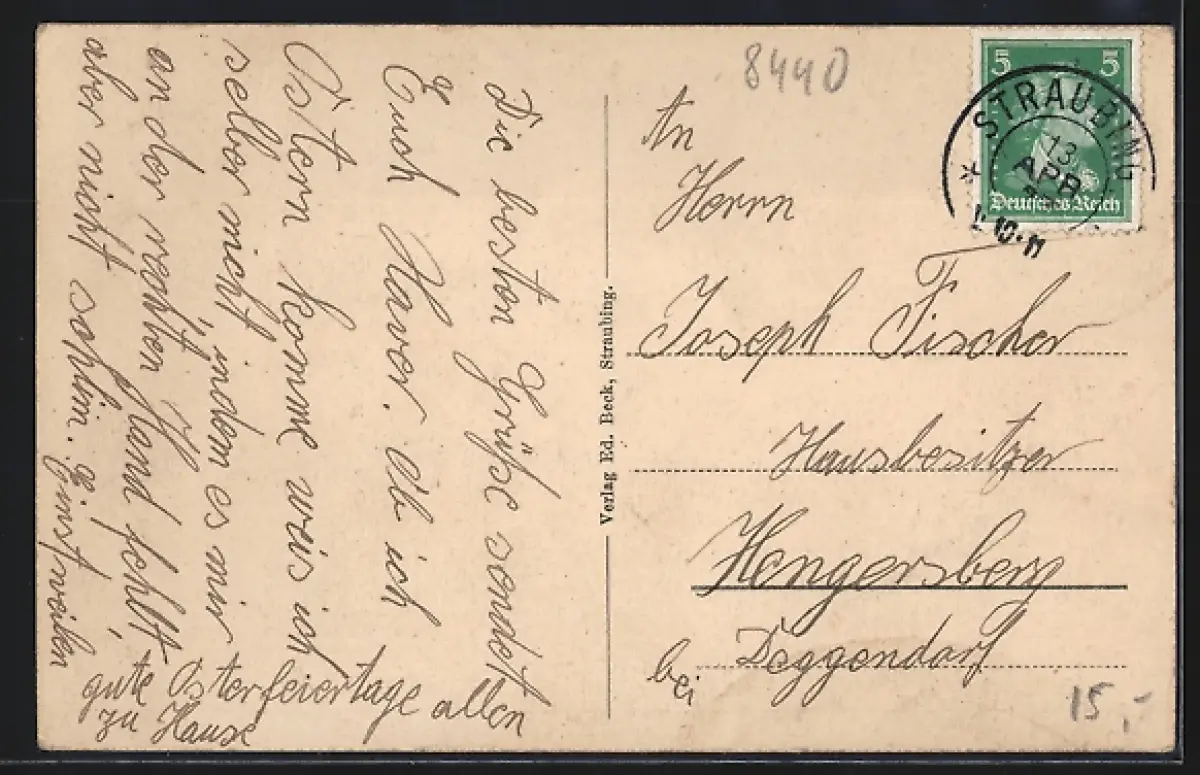 8440
5 5
STRAUBING
13
APR
10-11
Deutsches Reich
An
Herrn
Joseph Fischer
Hausbesitzer
Hengersberg
bei Deggendorf
15,-
Verlag Ed. Beck, Straubing.
Die besten Grüße sendet
Euch Xaver. Ob ich
Ostern komme weis ich
selber nicht, indem es mir
an der rechten Hand fehlt,
aber nicht schlim. Einstweilen
gute Osterfeiertage allen
zu Hause